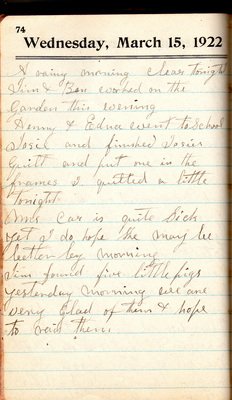 74
Wednesday, March 15, 1922
A rainy morning clear tonight
Jim & Ben worked on the
Garden this evening
Henny & Edna went to School
Josie and finished Josies
Quilt and put one in the
frames I quilted a little
tonight
Omas Car is quite Sick
yet I do hope she may be
better by morning
Jim found five little pigs
yesterday morning we are
very Glad of them & hope
to rais them